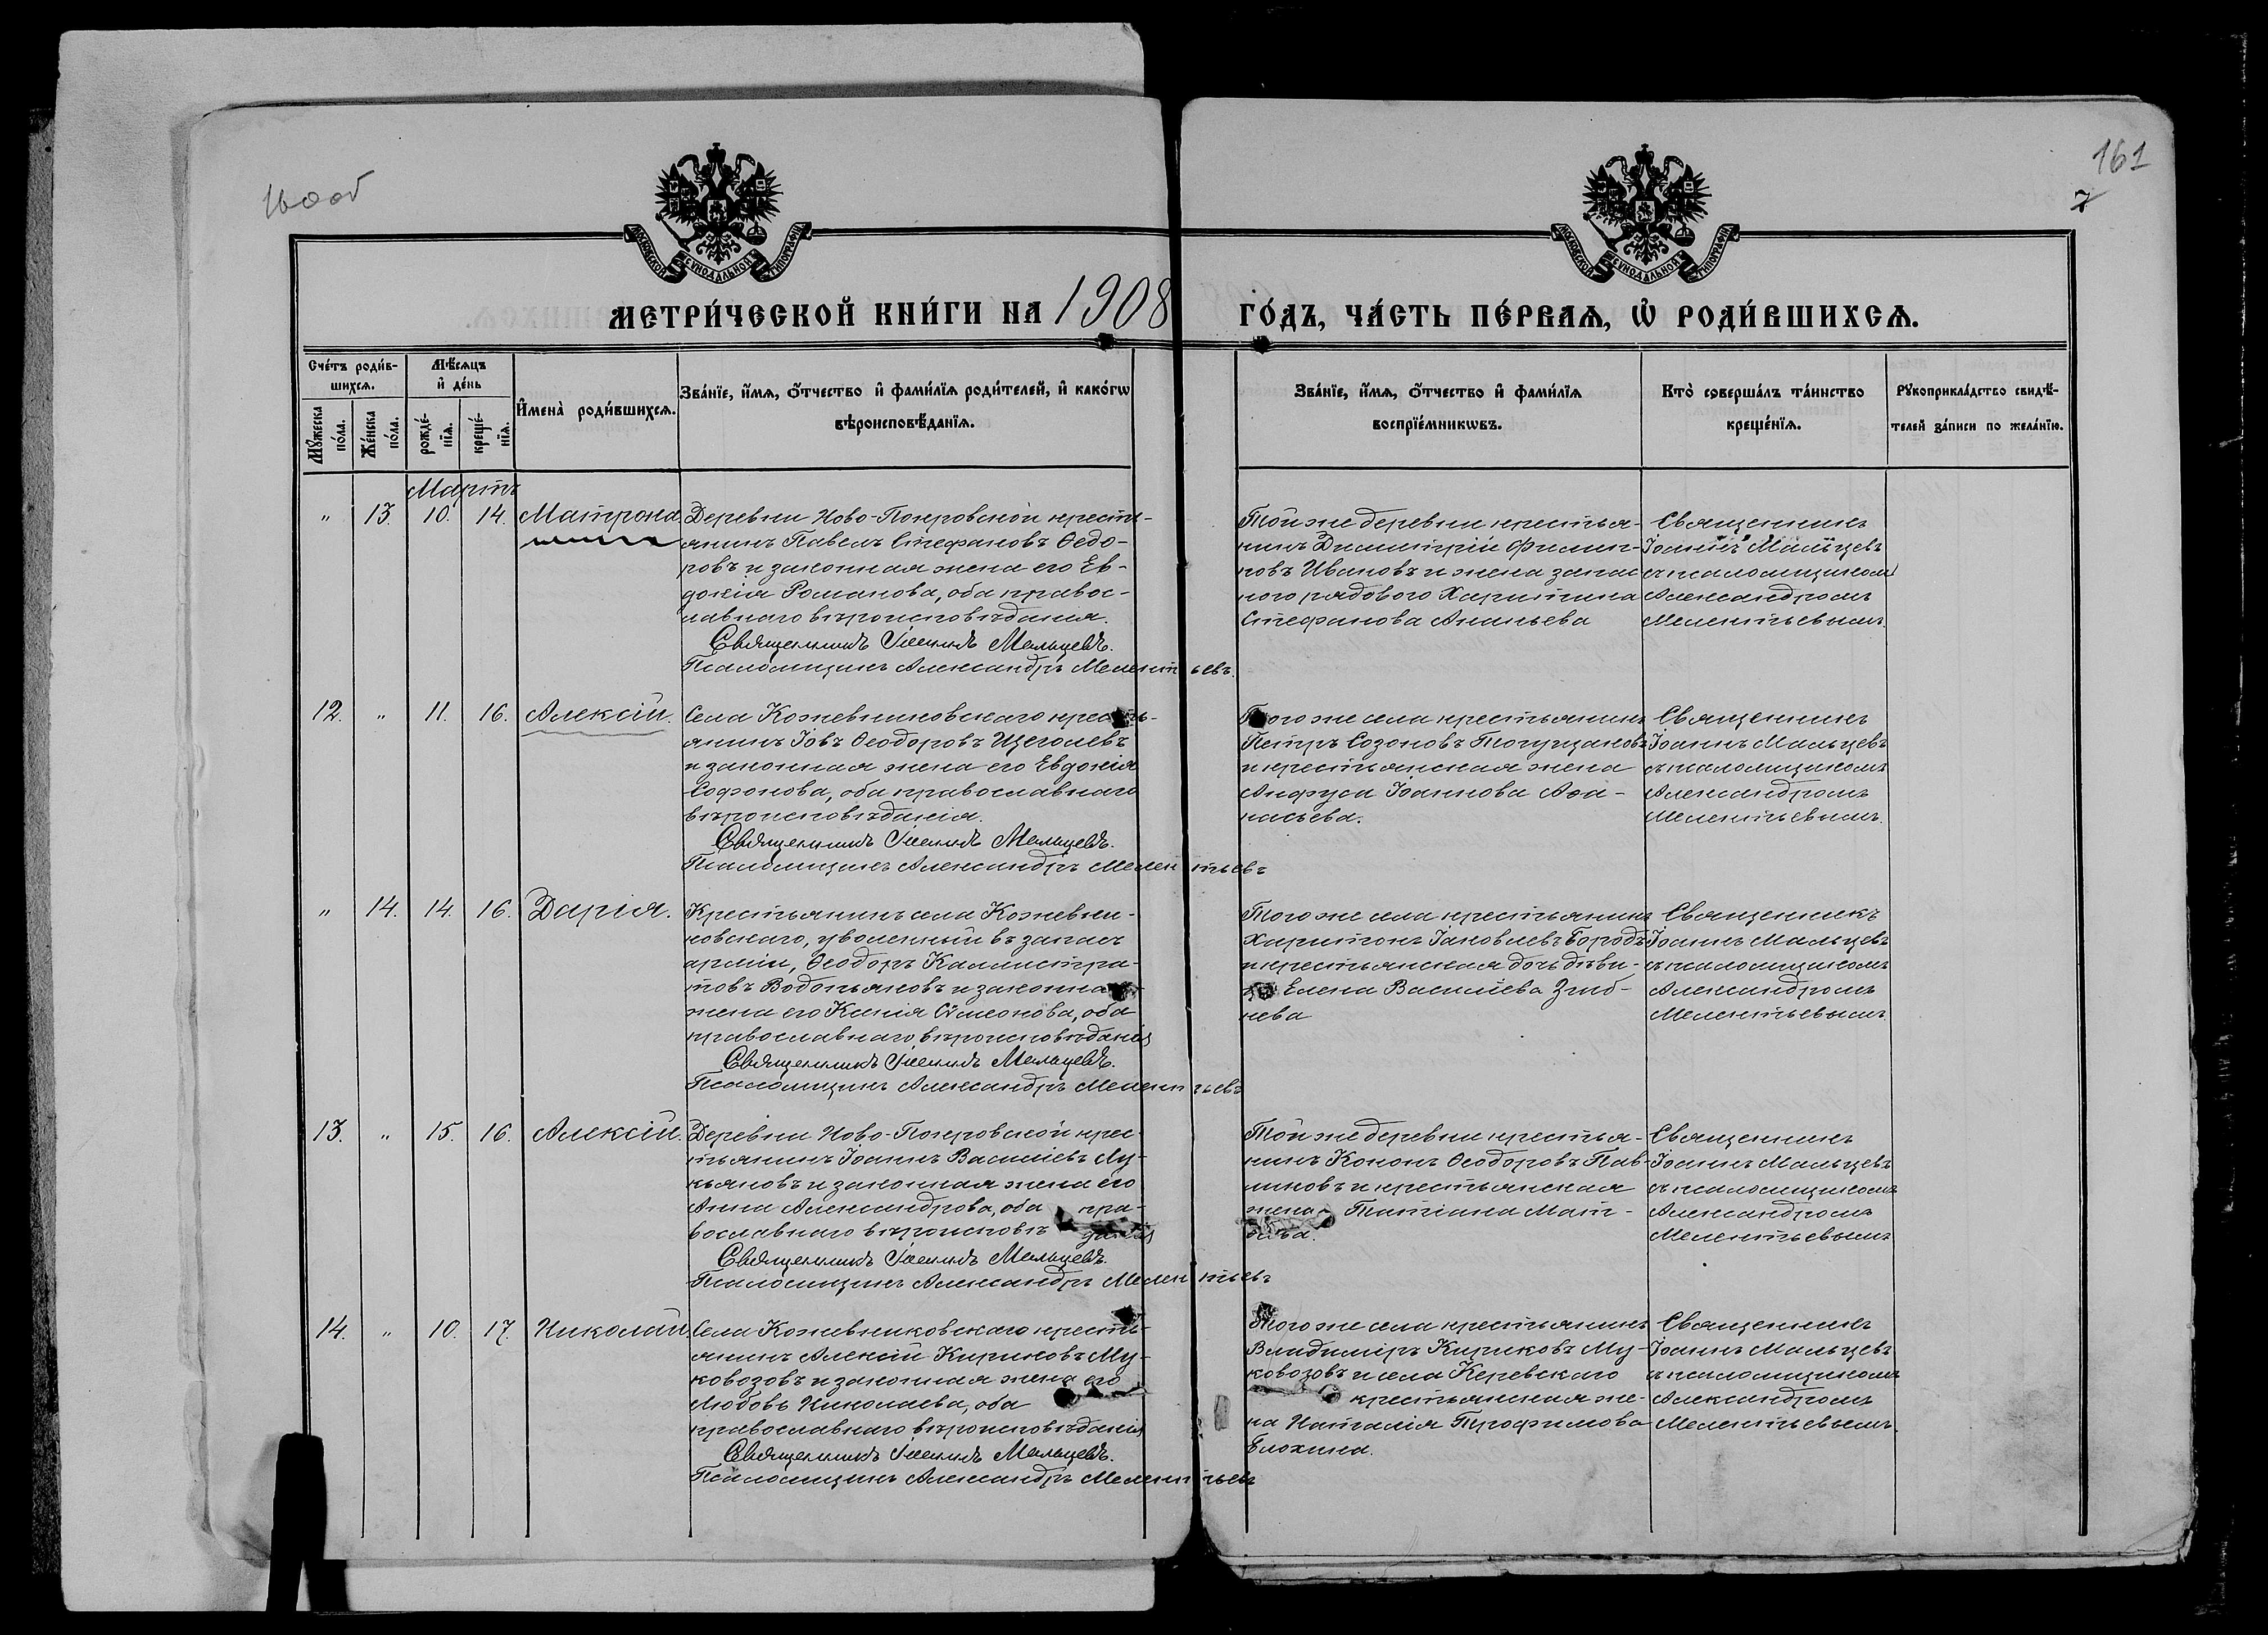 160об
161
7
МОСКОВСКОЙ СѴНОДАЛЬНОЙ ТИПОГРАФІИ
МОСКОВСКОЙ СѴНОДАЛЬНОЙ ТИПОГРАФІИ
МЕТРИ́ЧЕСКОЙ КНИ́ГИ НА 1908 ГО́ДЪ, ЧА́СТЬ ПЕ́РВАѦ, Ѡ҆ РОДИ́ВШИХСѦ.
Сче́тъ роди́в-
шихсѧ.
Мꙋ́жеска
по́ла.
Же́нска
по́ла.
Мѣ́сѧцъ
и҆ де́нь
рожде́-
нїѧ.
креще́-
нїѧ.
И҆мена̀ роди́вшихсѧ.
Зва́нїе, и҆́мѧ, ѻ҆́тчество и҆ фами́лїѧ роди́телей, и҆ како́гѡ
вѣроисповѣ́данїѧ.
Зва́нїе, и҆́мѧ, ѻ҆́тчество и҆ фами́лїѧ
воспрїе́мникѡвъ.
Кто̀ соверша́лъ та́инство
креще́нїѧ.
Рꙋкоприкла́дство свидѣ́-
телей за́писи по жела́нїю.
Мартъ
" 13. 10. 14. Матрона
Деревни Ново-Покровской кресть-
янинъ Павелъ Стефановъ Ѳедо-
ровъ и законная жена его Ев-
докія Романова, оба правос-
лавнаго вѣроисповѣданія.
Священникъ Іоаннъ Мальцевъ.
Псаломщикъ Александръ Мелентьевъ.
Той же деревни крестья-
нинъ Димитрій Филип-
повъ Ивановъ и жена запас
ного рядового Харитина
Стефанова Ананьева
Священникъ
Іоаннъ Мальцевъ
съ псаломщикомъ
Александромъ
Мелентьевымъ.
12. " 11. 16. Алексій.
Села Кожевниковскаго кресть-
янинъ Іовъ Ѳеодоровъ Щеголевъ
и законная жена его Евдокія
Софонова, оба православнаго
вѣроисповѣданія.
Священникъ Іоаннъ Мальцевъ.
Псаломщикъ Александръ Мелентьевъ
Того же села крестьянинъ
Петръ Созоновъ
и крестьянская жена
Анфуса Іоаннова Аѳа-
насьева.
Священникъ
Іоаннъ Мальцевъ
съ псаломщикомъ
Александромъ
Мелентьевымъ.
" 14. 14. 16. Дарія.
Крестьянинъ села Кожевни-
ковскаго, уволенный въ запасъ
арміи, Ѳеодоръ Каллистра-
товъ Водопьяновъ и законная
жена его Ксенія Сѵмеонова, оба
православнаго вѣроисповѣданія
Священникъ Іоаннъ Мальцевъ.
Псаломщикъ Александръ Мелентьевъ
Того же села крестьянинъ
Харитонъ Іаковлевъ
и крестьянская дочь дѣви-
Елена Василіева
нева
Священникъ
Іоаннъ Мальцевъ
съ псаломщикомъ
Александромъ
Мелентьевымъ.
13. " 15. 16. Алексій.
Деревни Ново-Покровской крес-
тьянинъ Іоаннъ Василіевъ Лу-
кьяновъ и законная жена его
Анна Александрова, оба пра-
вославнаго вѣроисповѣданія
Священникъ Іоаннъ Мальцевъ.
Псаломщикъ Александръ Мелентьевъ
Той же деревни крестья-
нинъ Кононъ Ѳеодоровъ Пав-
ликовъ и крестьянская
жена Татіана Мат-
Священникъ
Іоаннъ Мальцевъ
съ псаломщикомъ
Александромъ
Мелентьевымъ
14. " 10. 17. Николай
Села Кожевниковскаго кресть-
янинъ Алексій Кириковъ Му-
ковозовъ и законная жена его
Любовь Николаева, оба
православнаго вѣроисповѣданія
Священникъ Іоаннъ Мальцевъ.
Псаломщикъ Александръ Мелентьевъ
Того же села крестьянинъ
Владиміръ Кириковъ Му-
ковозовъ и села Керевскаго
крестьянская же-
на Наталія Трофимова
Блохина.
Священникъ
Іоаннъ Мальцевъ
съ псаломщикомъ
Александромъ
Мелентьевымъ.